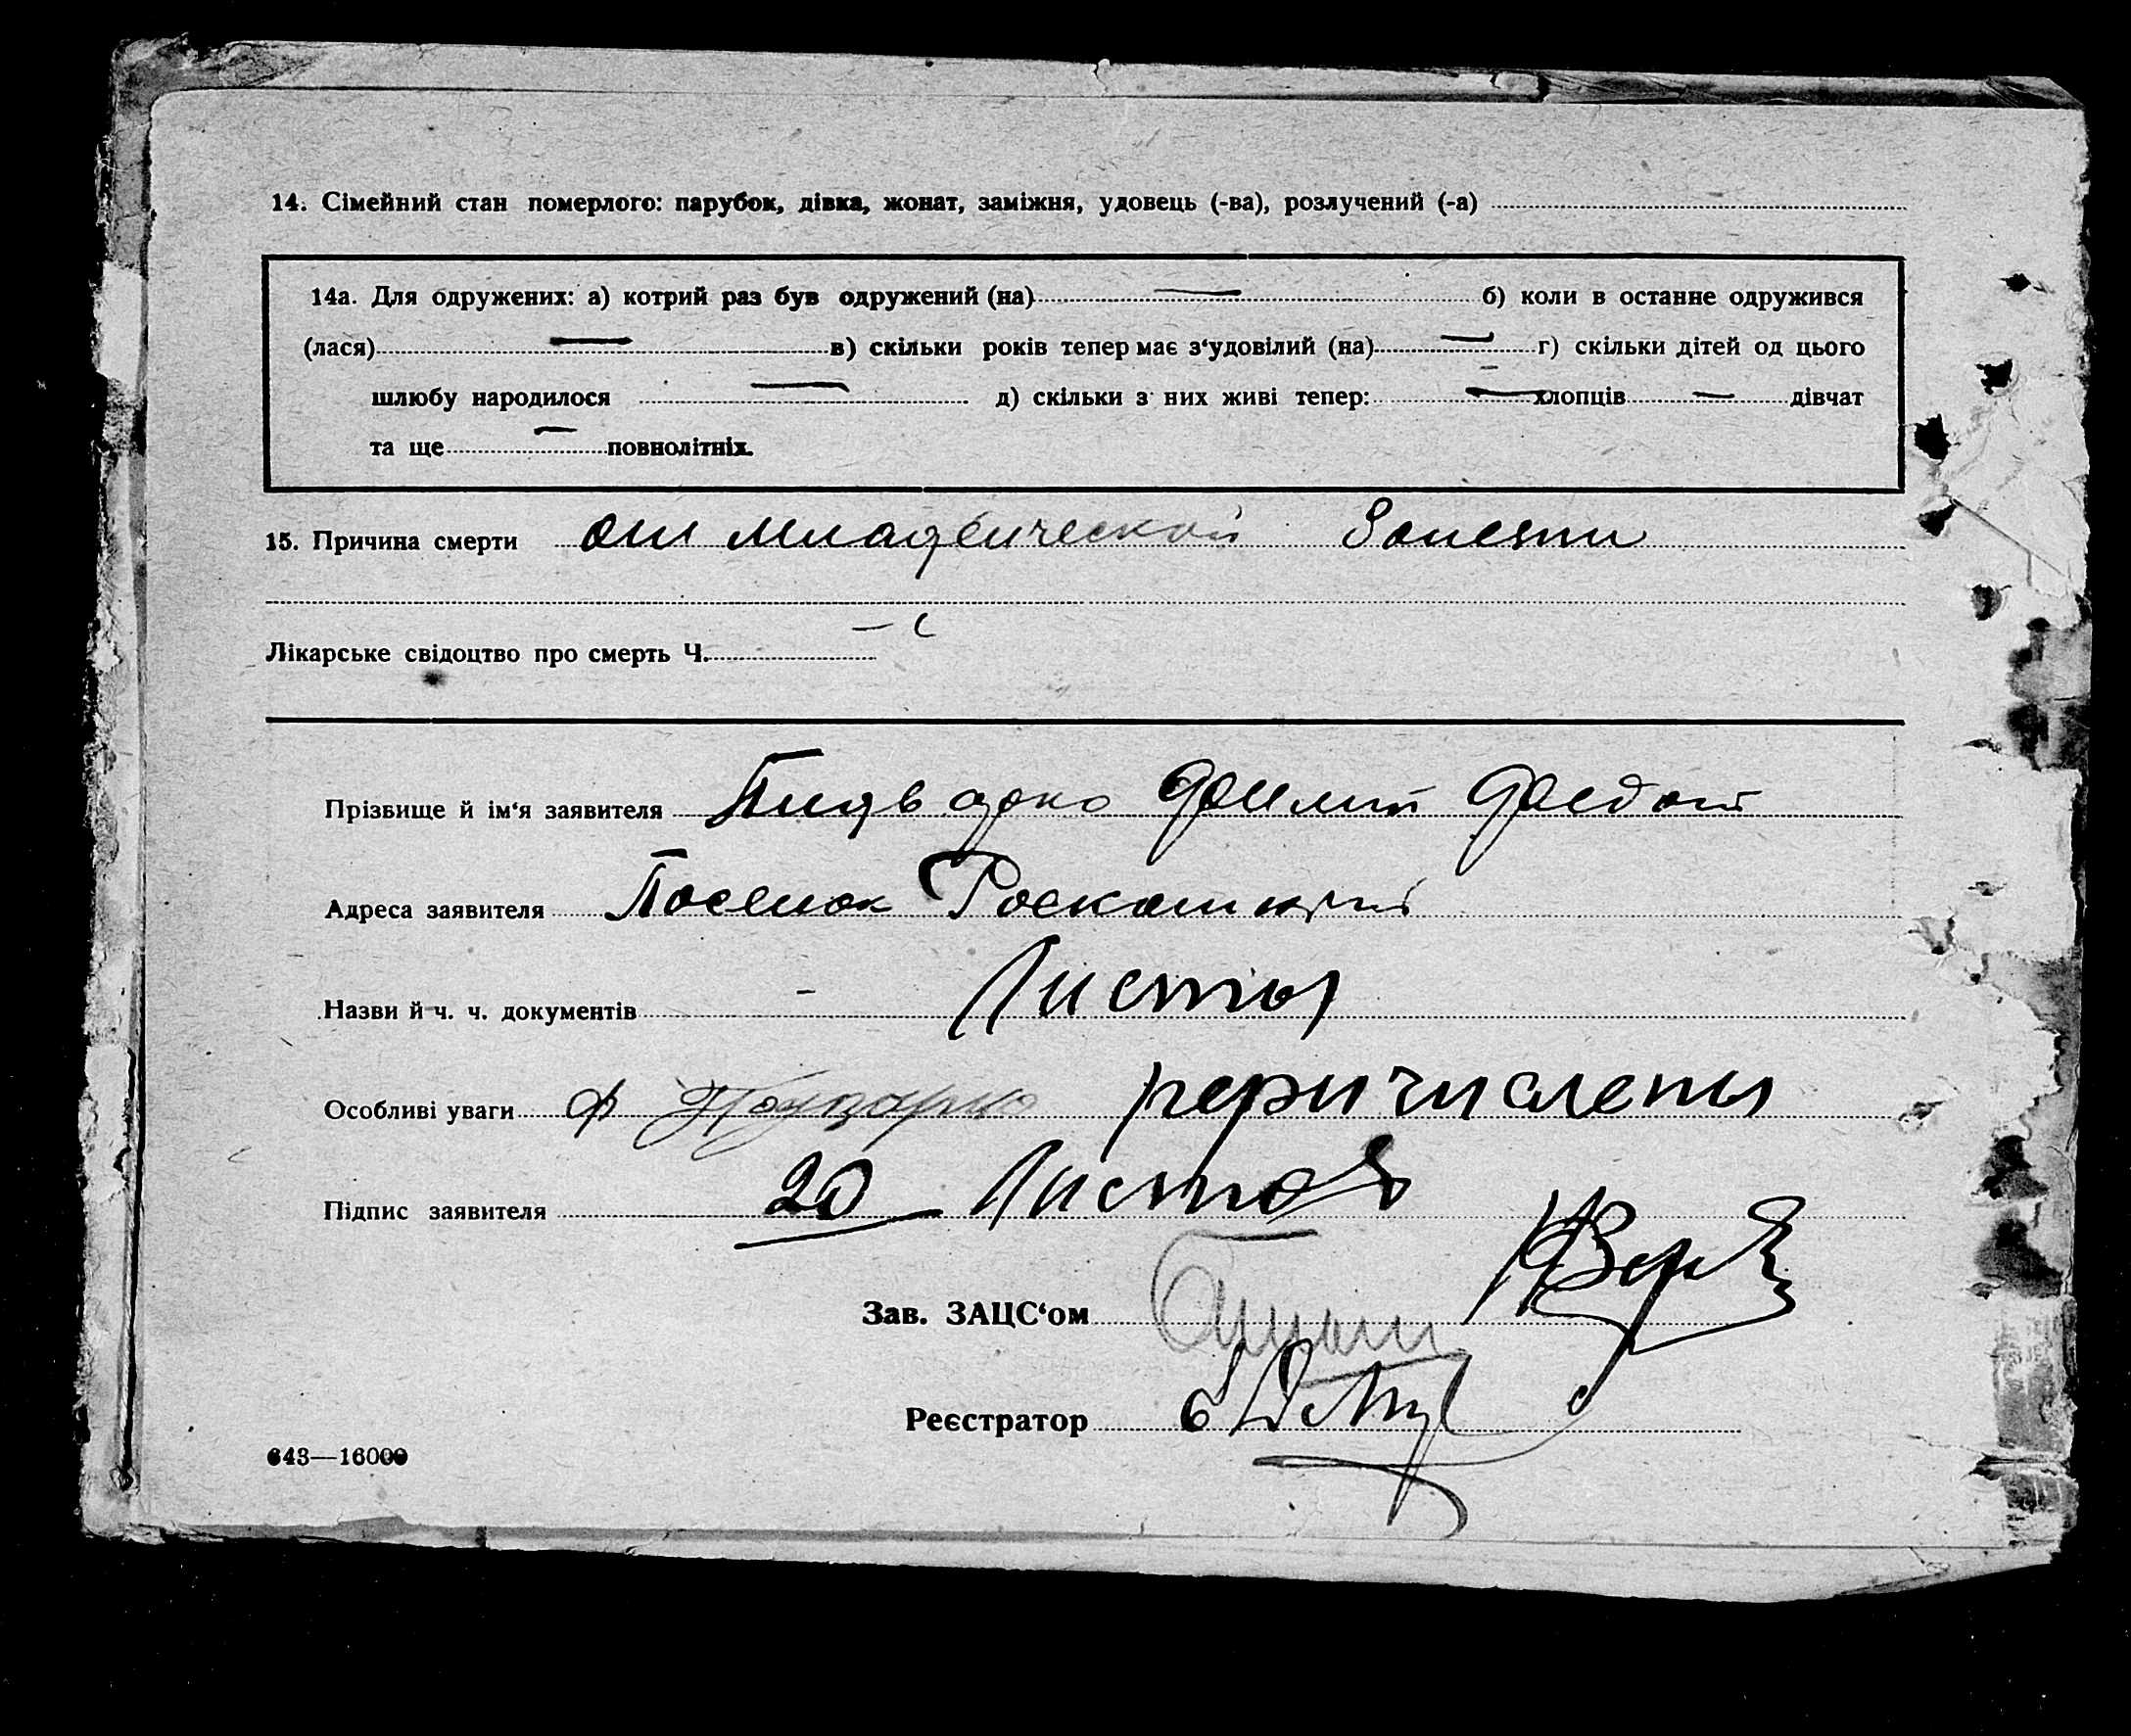 14. Сімейний стан померлого: парубок, дівка, жонат, заміжня, удовець (-ва), розлучений (-а)
14а. Для одружених: а) котрий раз був одружений (на) — б) коли в останне одружився
(лася) — в) скільки років тепер має з‘удовілий (на) — г) скільки дітей од цього
шлюбу народилося — д) скільки з них живі тепер: — хлопців — дівчат
та ще — повнолітніх.
15. Причина смерти от младенческой
Лікарське свідоцтво про смерть Ч. —
Прізвище й ім‘я заявителя
Адреса заявителя Поселок
Назви й ч. ч. документів - Листы
Особливі уваги
Підпис заявителя 20 Листов
Зав. ЗАЦС‘ом
Реєстратор
643—16000